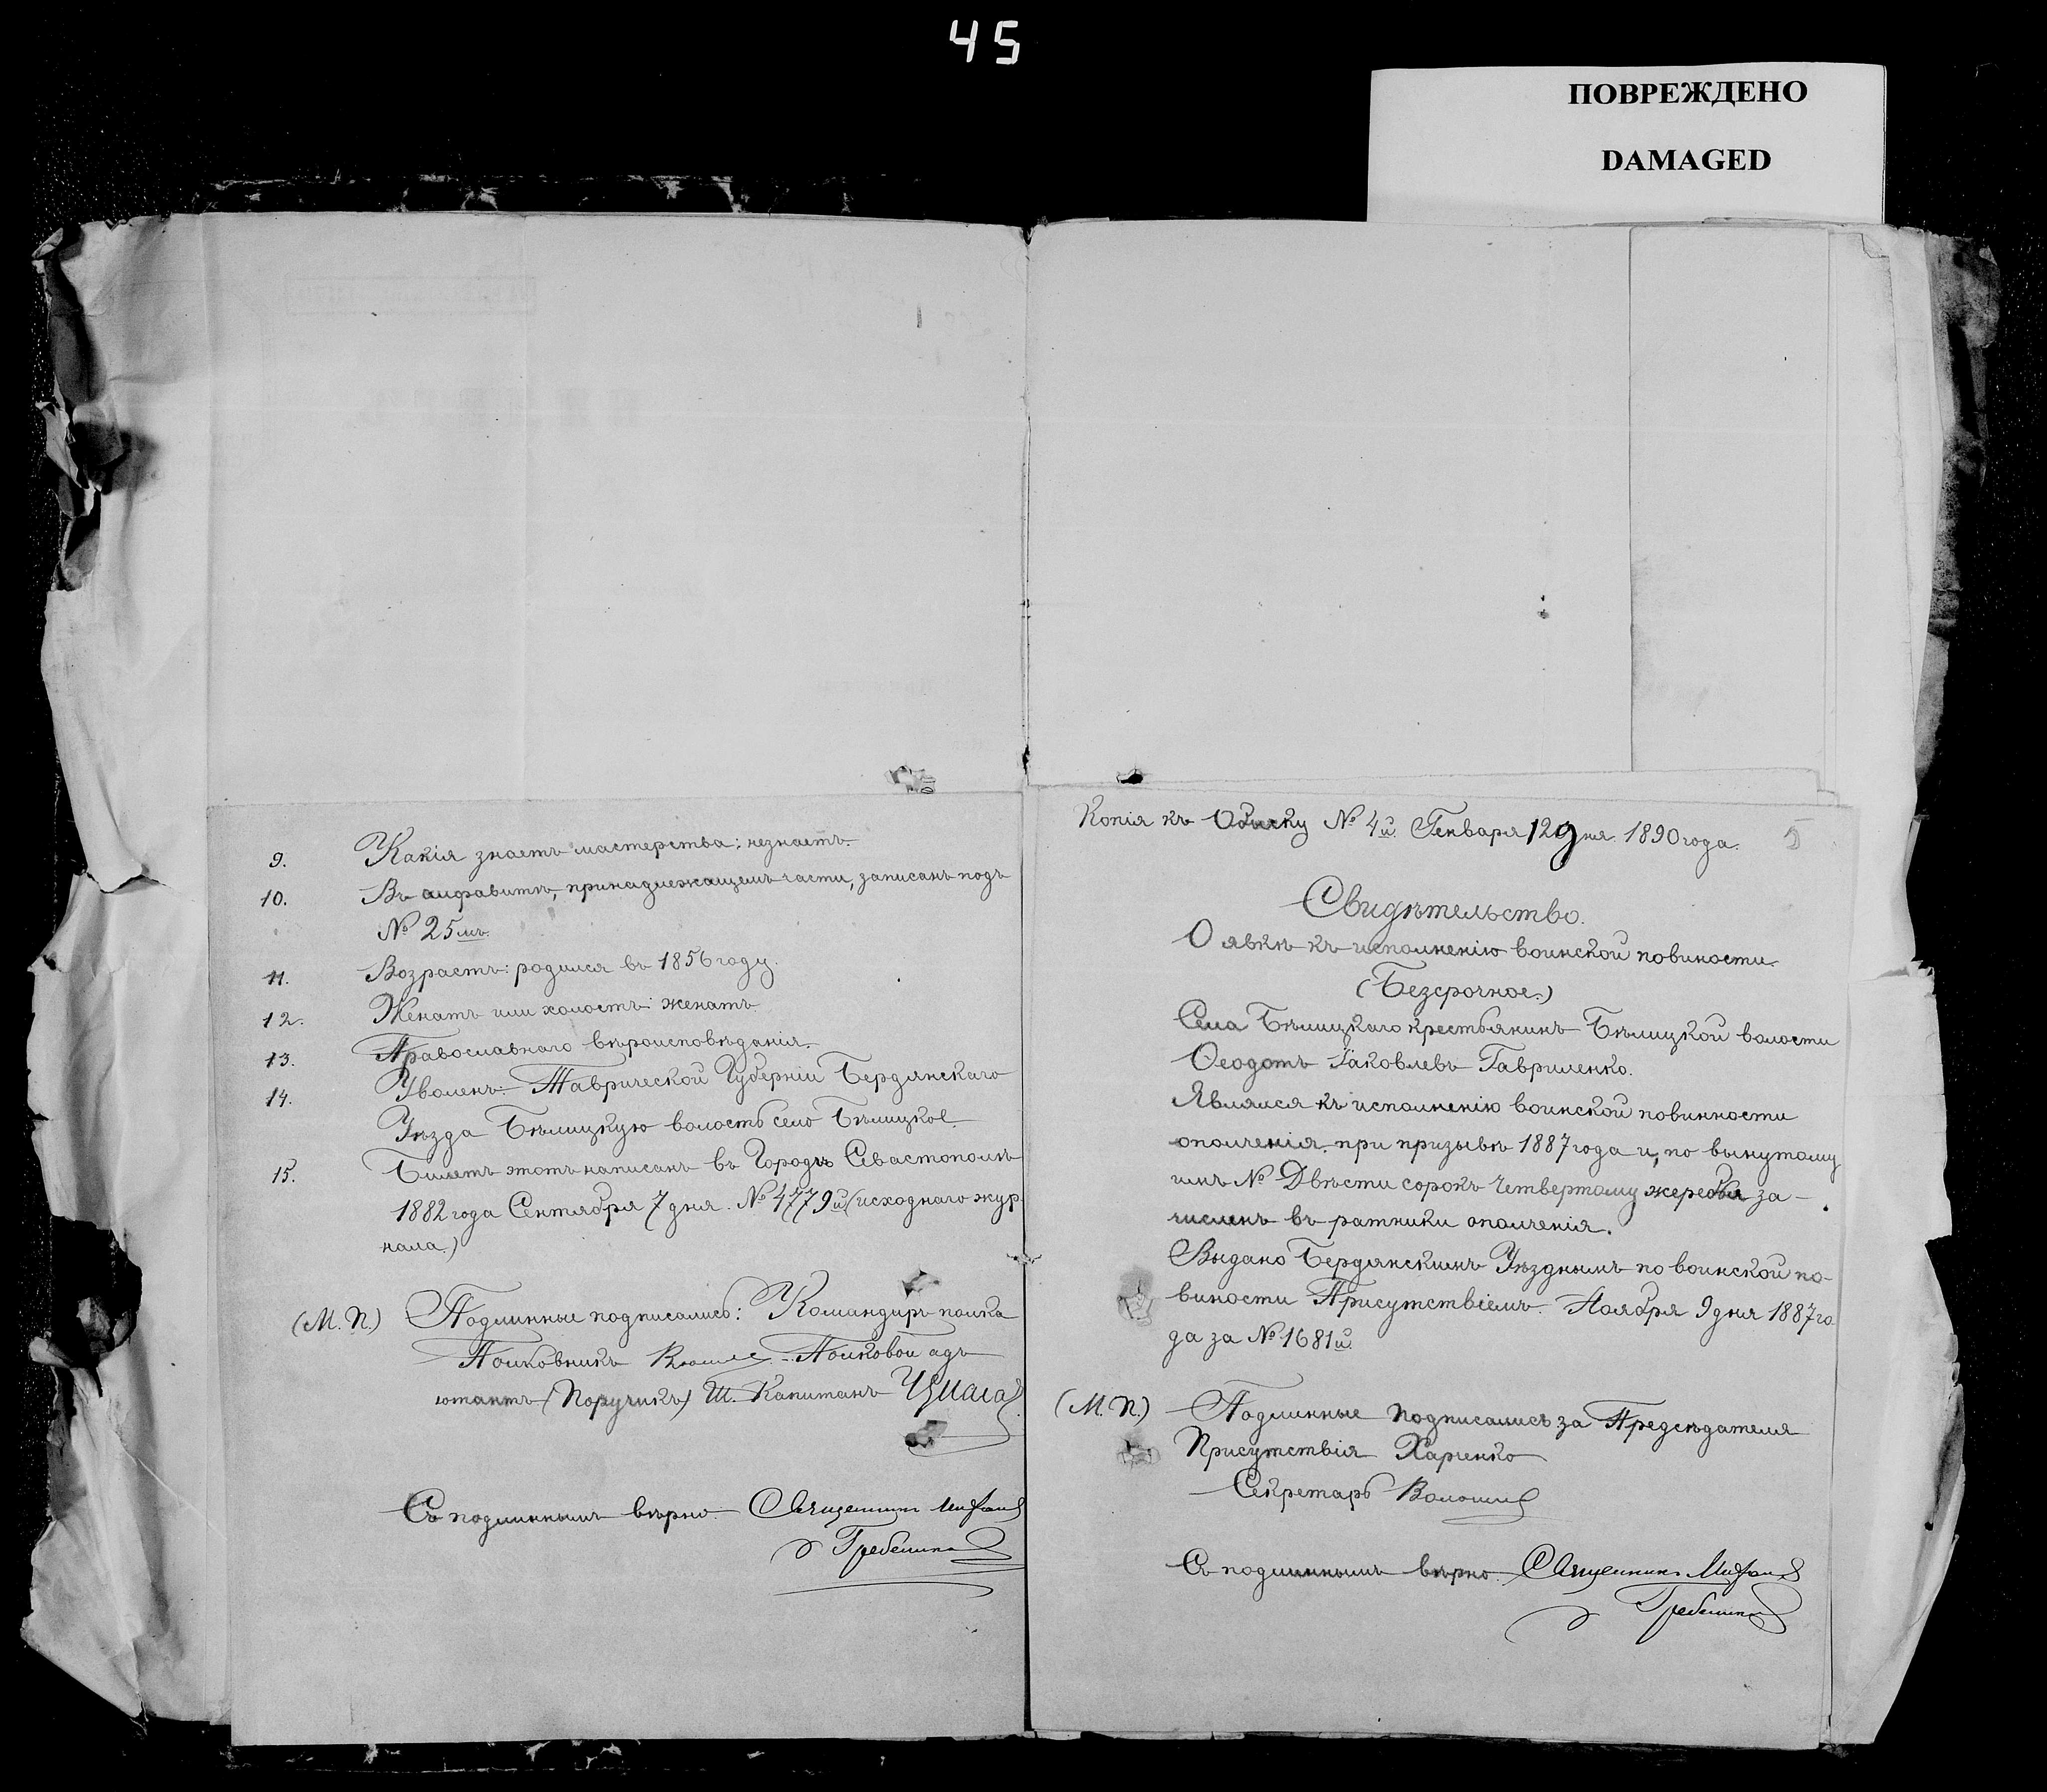 45
ПОВРЕЖДЕНО
DAMAGED
9. Какія знаетъ мастерства: незнаетъ.
10. Въ алфавитѣ, принадлежащемъ части, записанъ подъ
№ 25мъ.
11. Возрастъ: родился въ 1856 году.
12. Женатъ или холостъ: женатъ.
13. Православнаго вѣроисповѣданія.
14. Уволенъ: Таврической Губерніи Бердянскаго
Уѣзда Бѣлицкую волость село Бѣлицкое.
15. Билетъ этотъ написанъ въ Городѣ Севастополѣ
1882 года Сентября 7 дня. № 4779й (исходнаго жур
нала.)
(М. П.) Подлинные подписались: Командиръ полка
Полковникъ Полковой адъ
ютантъ (Поручикъ) Ш. Капитанъ
Съ подлиннымъ вѣрно. Священникъ
Гребенка
Копія къ Обыску № 4й Генваря 12 дня 1890 года.
5
Свидѣтельство.
О явкѣ къ исполненію воинской повиности.
(Безсрочное.)
Села Бѣлицкаго крестьянинъ Бѣлицкой волости
Ѳеодотъ Іаковлевъ Гавриленко.
Являлся къ исполненію воинской повинности
ополченія при призывѣ 1887 года и, по вынутому
имъ № Двѣсти сорокъ четвертому жеребья за-
численъ въ ратники ополченія.
Выдано Бердянскимъ Уѣзднымъ по воинской по-
виности Присутствіемъ. Ноября 9 дня 1887 го
да за № 1681й.
(М. П.) Подлинные подписались за Предсѣдателя
Присутствія Харченко
Секретарь Волошин
Съ подлиннымъ вѣрно. Священникъ
Гребенка